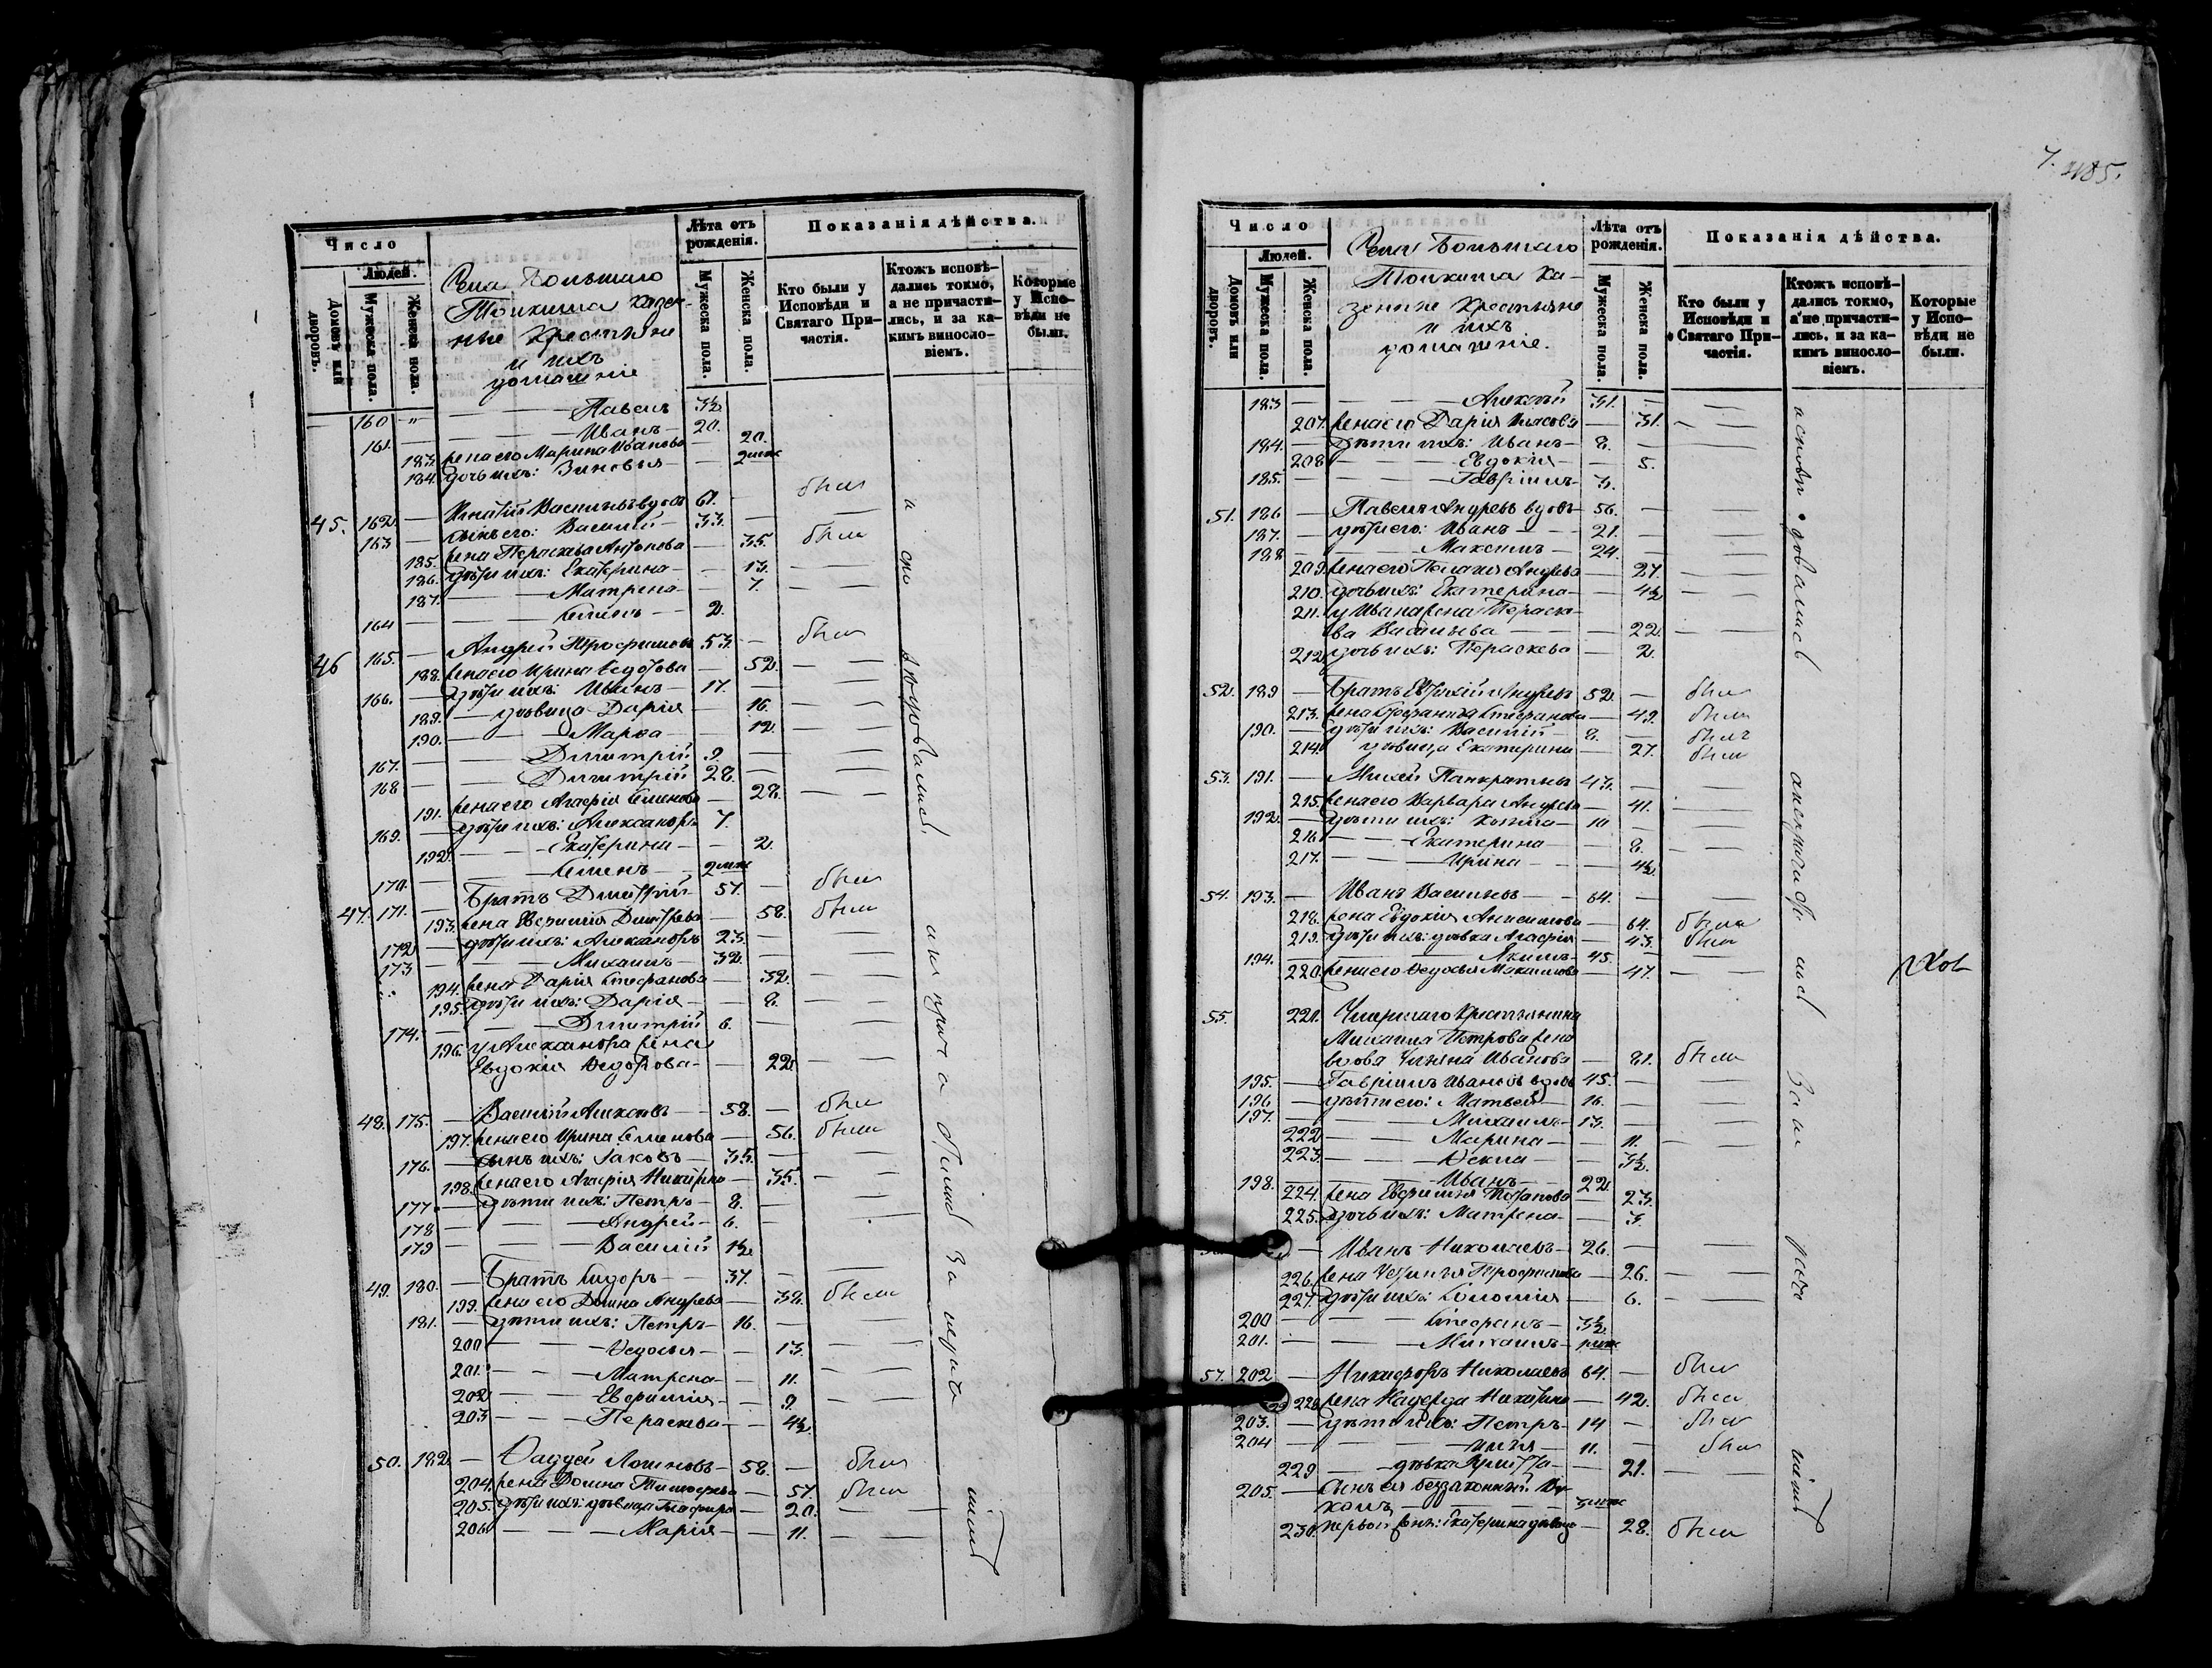 Число
Людей.
Домовъ или дворовъ.
Мужеска пола.
Женска пола.
Села Большаго
Толкиша Казен-
ные Крестьяне
и ихъ
домашніе
Лѣта отъ рожденія.
Мужеска пола.
Женска пола.
Показанія дѣйства.
Кто были у Исповѣди и Святаго При-частія.
Ктожъ исповѣ-дались токмо, а не причасти-лись, и за ка-кимъ виносло-віемъ.
Которые у Испо-вѣди не были.
160 — Павелъ 3½
161. — Иванъ — 20.
183. жена его Марина Иванова — 20.
184. дочь ихъ: Зиновья — 2
45. 162. — Игнатій Васильевъ вдовъ 61. — былъ
163 — сынъ его: Василій — 33. —
185. жена Пераскева Антонова — 35. была
186. дѣти ихъ: Екатерина — 13.
187. — Матрена — 7.
164 — Семенъ — 2.
46 165. — Андрей Трофимовъ 53. — былъ
188. жена его Ирина Федотова — 52.
166. — дѣти ихъ: Иванъ — 17.
189. — дѣвица Дарія — 16.
190. — Марфа — 12.
167. — Димитрій 9.
168 — Димитрій 28.
191. жена его Агафія Семенова — 28.
169. — дѣти ихъ: Александръ 7.
192. — Екатерина — 2.
170. — Семенъ — 2
47. 171. — Братъ Димитрій — 57. — былъ
193. жена Евфимія Дмитрева — 58. была
172 — дѣти ихъ: Александръ 23.
173 — Михаилъ — 32.
194. жена Дарія Стефанова — 32.
195. дѣти ихъ: Дарія — 8.
174. — Димитрій 6.
196. у Александра жена
Евдокія Федорова — 22.
48. 175. — Василій Алексѣевъ — 58. — былъ
197. жена его Ирина Семенова — 56. была
176. — сынъ ихъ: Іаковъ — 35.
198. жена его Агафія Никитина — 35.
177. — дѣти ихъ: Петръ — 8.
178 — Андрей — 6.
179 — Василій 1½.
49. 180. — Братъ Сидоръ — 37.
199. жена его Домна Андрева — 38. была
181. — дѣти ихъ: Петръ — 16.
200 — Федосья — 13.
201. — Матрена — 11.
202 — Евфимія — 9.
203 — Пераскева — 4½
50. 182. — Фаддей Логиновъ — 58. — былъ
204. жена Домна Тимофеева — 57. была
205. дѣти ихъ: дѣвица — 20.
206 — Марія — 11.
185.
Число
Людей.
Домовъ или дворовъ.
Мужеска пола.
Женска пола.
Села Большаго
Толкиша Ка-
зенные Крестьяне
и ихъ
домашніе.
Лѣта отъ рожденія.
Мужеска пола.
Женска пола.
Показанія дѣйства.
Кто были у Исповѣди и Святаго При-частія.
Ктожъ исповѣ-дались токмо, а не причасти-лись, и за ка-кимъ виносло-віемъ.
Которые у Испо-вѣди не были.
183 — Алексѣй 31.
207. жена его Дарія — 31.
184. — дѣти ихъ: Иванъ — 8.
208 — Евдокія — 5.
185. — Гавріилъ — 3.
51. 186 — Павелъ Андревъ вдовъ — 56.
187. — дѣти его: Иванъ — 21.
188 — Максимъ — 24.
209. жена его Пелагія Андрева — 27.
210. дочь ихъ: Екатерина — 4½
211. у Ивана жена Пераске-
ва Васильева — 22.
212. дочь ихъ: Пераскева — 2.
52. 189 — Братъ Евтихій Андревъ 52. — былъ
213. жена Стефанида Стефанова — 49. была
190. — дѣти ихъ: Василій — 8. — былъ
214. дѣвица Екатерина — 27. была
53. 191. — Михей Панкратьевъ 43.
215. жена его Варвара Андрева — 41.
192. — дѣти ихъ: Козьма — 10
216 — Екатерина — 8.
217. — Ирина — 4½
54. 193. — Иванъ Васильевъ — 64.
218. жена Евдокія Анисимова — 64. была
219. дѣти ихъ: дѣвка Агафія — 43. была
194. — Акимъ — 45.
220. жена его Федосья Максимова — 47.
55. 221. Умершаго Крестьянина
Михаила Петрова жена
вдова Ульяна Иванова — 81. была
195. — Гавріилъ Ивановъ вдовъ 45.
196 — дѣти его: Матвей — 16.
197. — Михаилъ — 13.
222 — Марина — 11.
223. — Фекла — 3½.
198. — Иванъ — 22.
224. жена Евфимія Потапова — 23.
225. дочь ихъ: Матрена — 3.
— Иванъ Николаевъ — 26.
226. жена Устинья Трофимова — 26.
227. дѣти ихъ: Соломія — 6.
200 — Стефанъ — 3½
201. — Михаилъ —
57. 202 — Никифоръ Николаевъ 64. — былъ
228. жена Надежда Никитина — 42. была
203. — дѣти ихъ: Петръ — 14 — былъ
204 — Илья — 11. — былъ
229 — дѣвка — 21.
205. — сынъ ея беззаконный Ни-
колъ —
230. первой жены: Екатерина дѣвица — 28. была